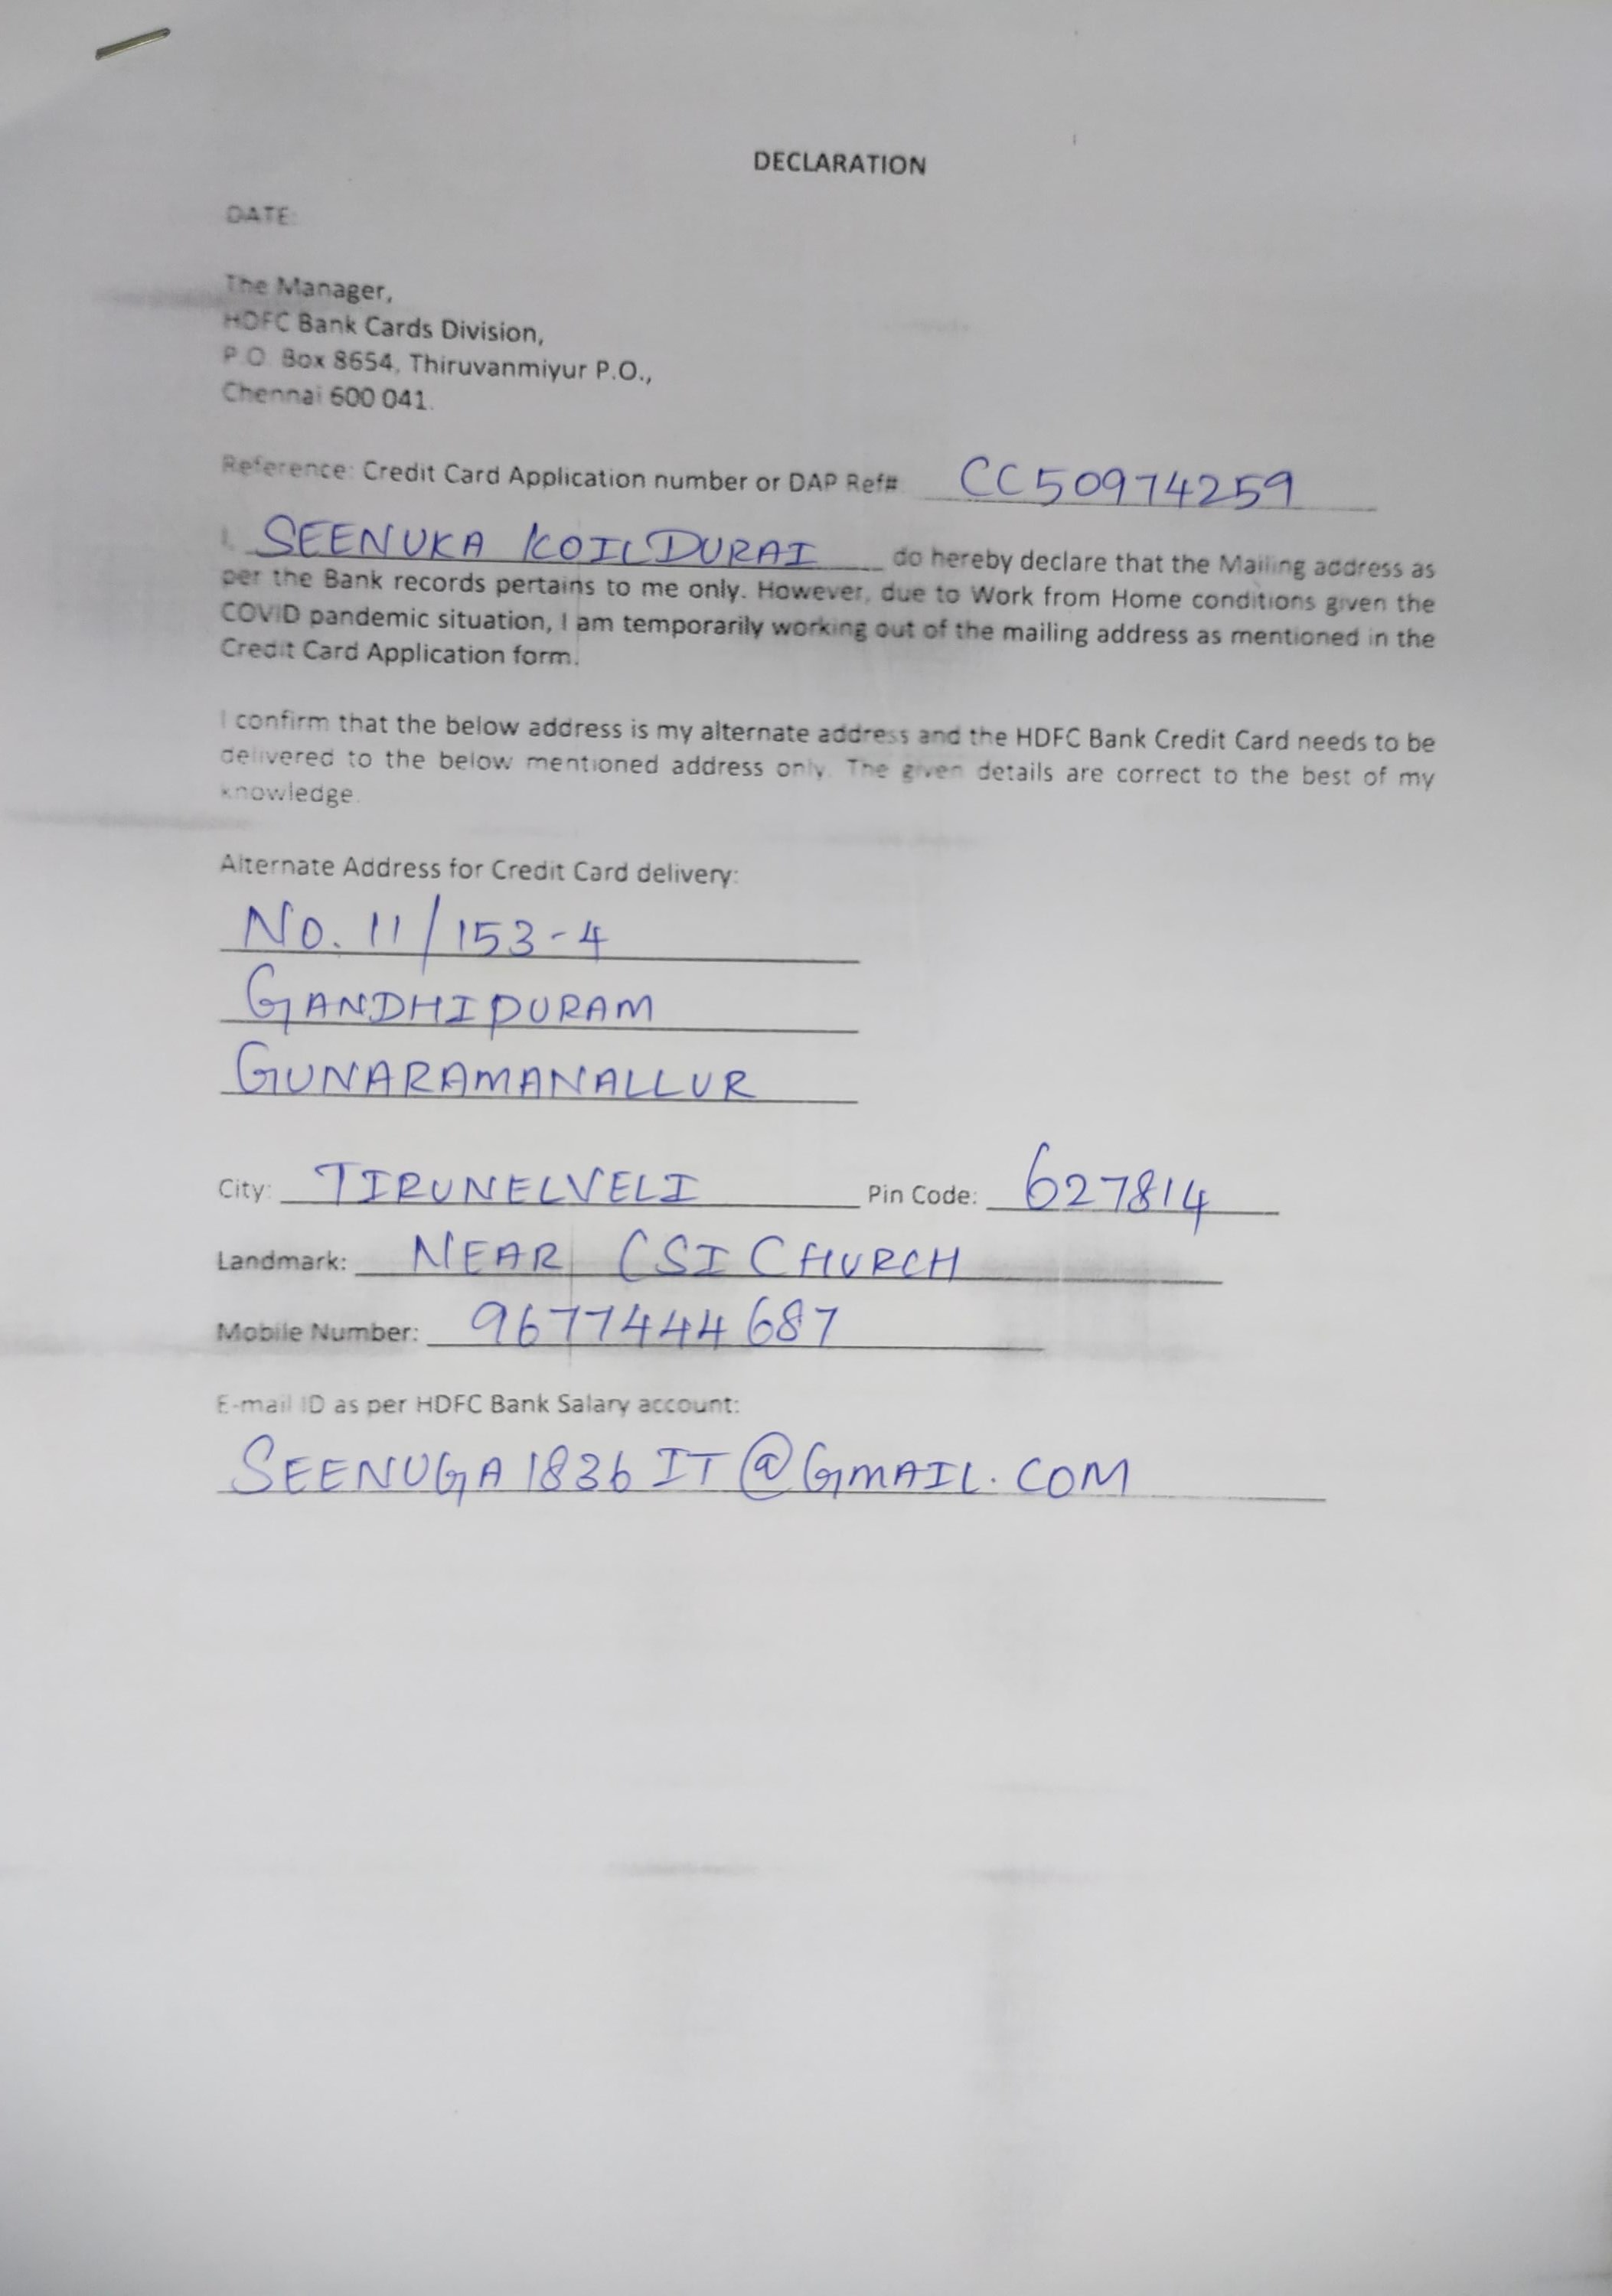 DECLARATION
DATE:
The Manager,
HDFC Bank Cards Division,
P.O. Box 8654, Thiruvanmiyur P.O.,
Chennai 600 041.
Reference: Credit Card Application number or DAP Ref# CC50974259
I, SEENUKA KOILDURAI do hereby declare that the Mailing address as
per the Bank records pertains to me only. However, due to Work from Home conditions given the
COVID pandemic situation, I am temporarily working out of the mailing address as mentioned in the
Credit Card Application form.
I confirm that the below address is my alternate address and the HDFC Bank Credit Card needs to be
delivered to the below mentioned address only. The given details are correct to the best of my
knowledge.
Alternate Address for Credit Card delivery:
No. 11/153-4
GANDHIPURAM
GUNARAMANALLUR
City: TIRUNELVELI Pin Code: 627814
Landmark: NEAR CSI CHURCH
Mobile Number: 9677444687
E-mail ID as per HDFC Bank Salary account:
SEENUGA1836IT@GMAIL.COM